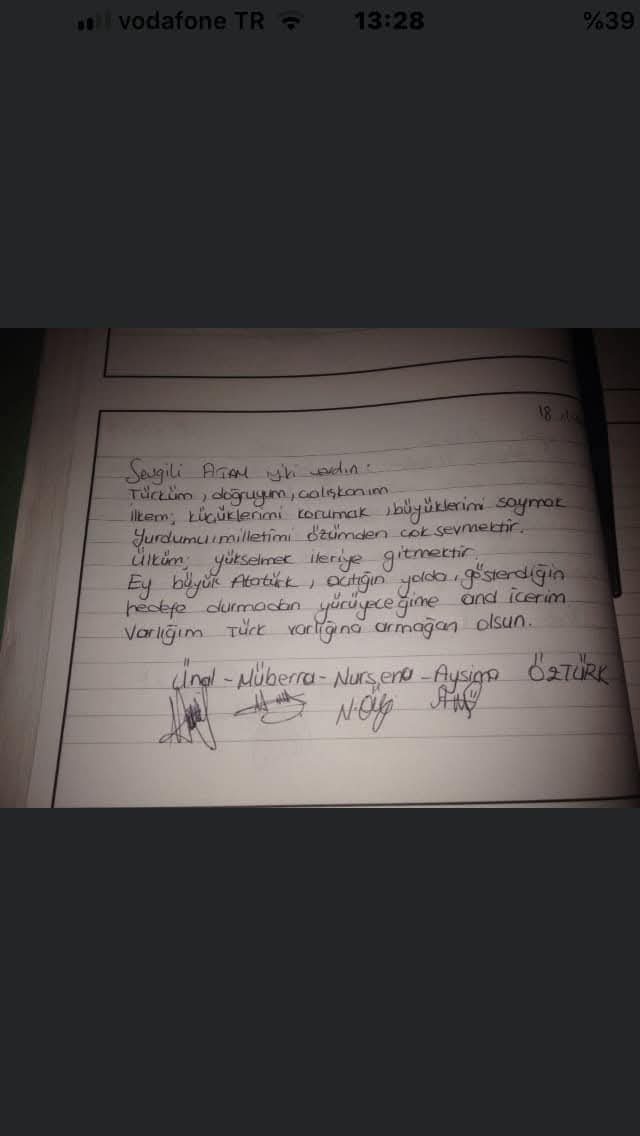 vodafone TR 13:28 %39
18
Sevgili ATAM iyiki vardın.
Türküm, doğruyum, çalışkanım
İlkem; küçüklerimi korumak, büyüklerimi saymak
Yurdumu, milletimi özümden çok sevmektir.
Ülküm; yükselmek ileriye gitmektir.
Ey büyük Atatürk, açtığın yolda, gösterdiğin
hedefe durmadan yürüyeceğime and içerim
Varlığım Türk varlığına armağan olsun.
Ünal - Müberra - Nurşena - Aysima ÖZTÜRK
N.Öz